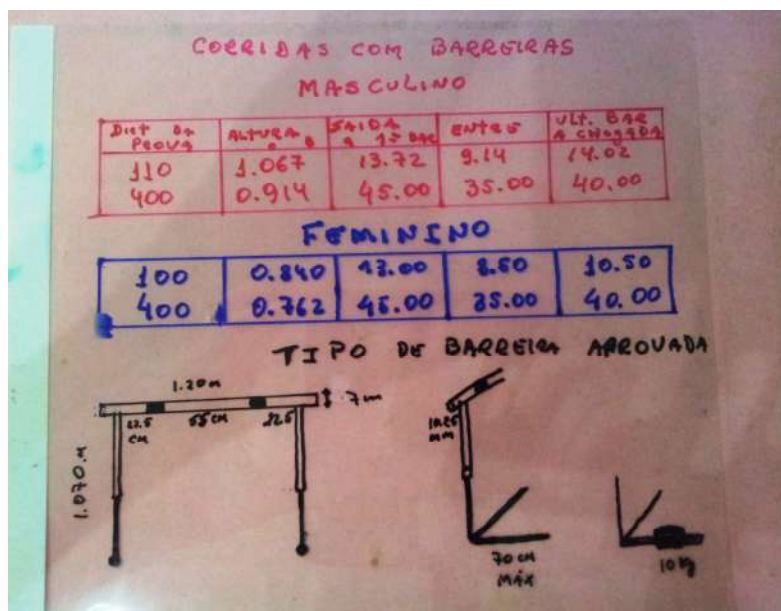 CORRIDAS COM BARREIRAS
MASCULINO
DIST DA PROVA ALTURA SAIDA A 1ª BAR ENTRE ULT. BAR A CHEGADA
110 1.067 13.72 9.14 14.02
400 0.914 45.00 35.00 40.00
FEMININO
100 0.840 13.00 8.50 10.50
400 0.762 45.00 35.00 40.00
TIPO DE BARREIRA APROVADA
1.20m
7cm
22.5 CM 55 CM 22.5
1.070.M
MM
70 CM
MÁX
10 Kg